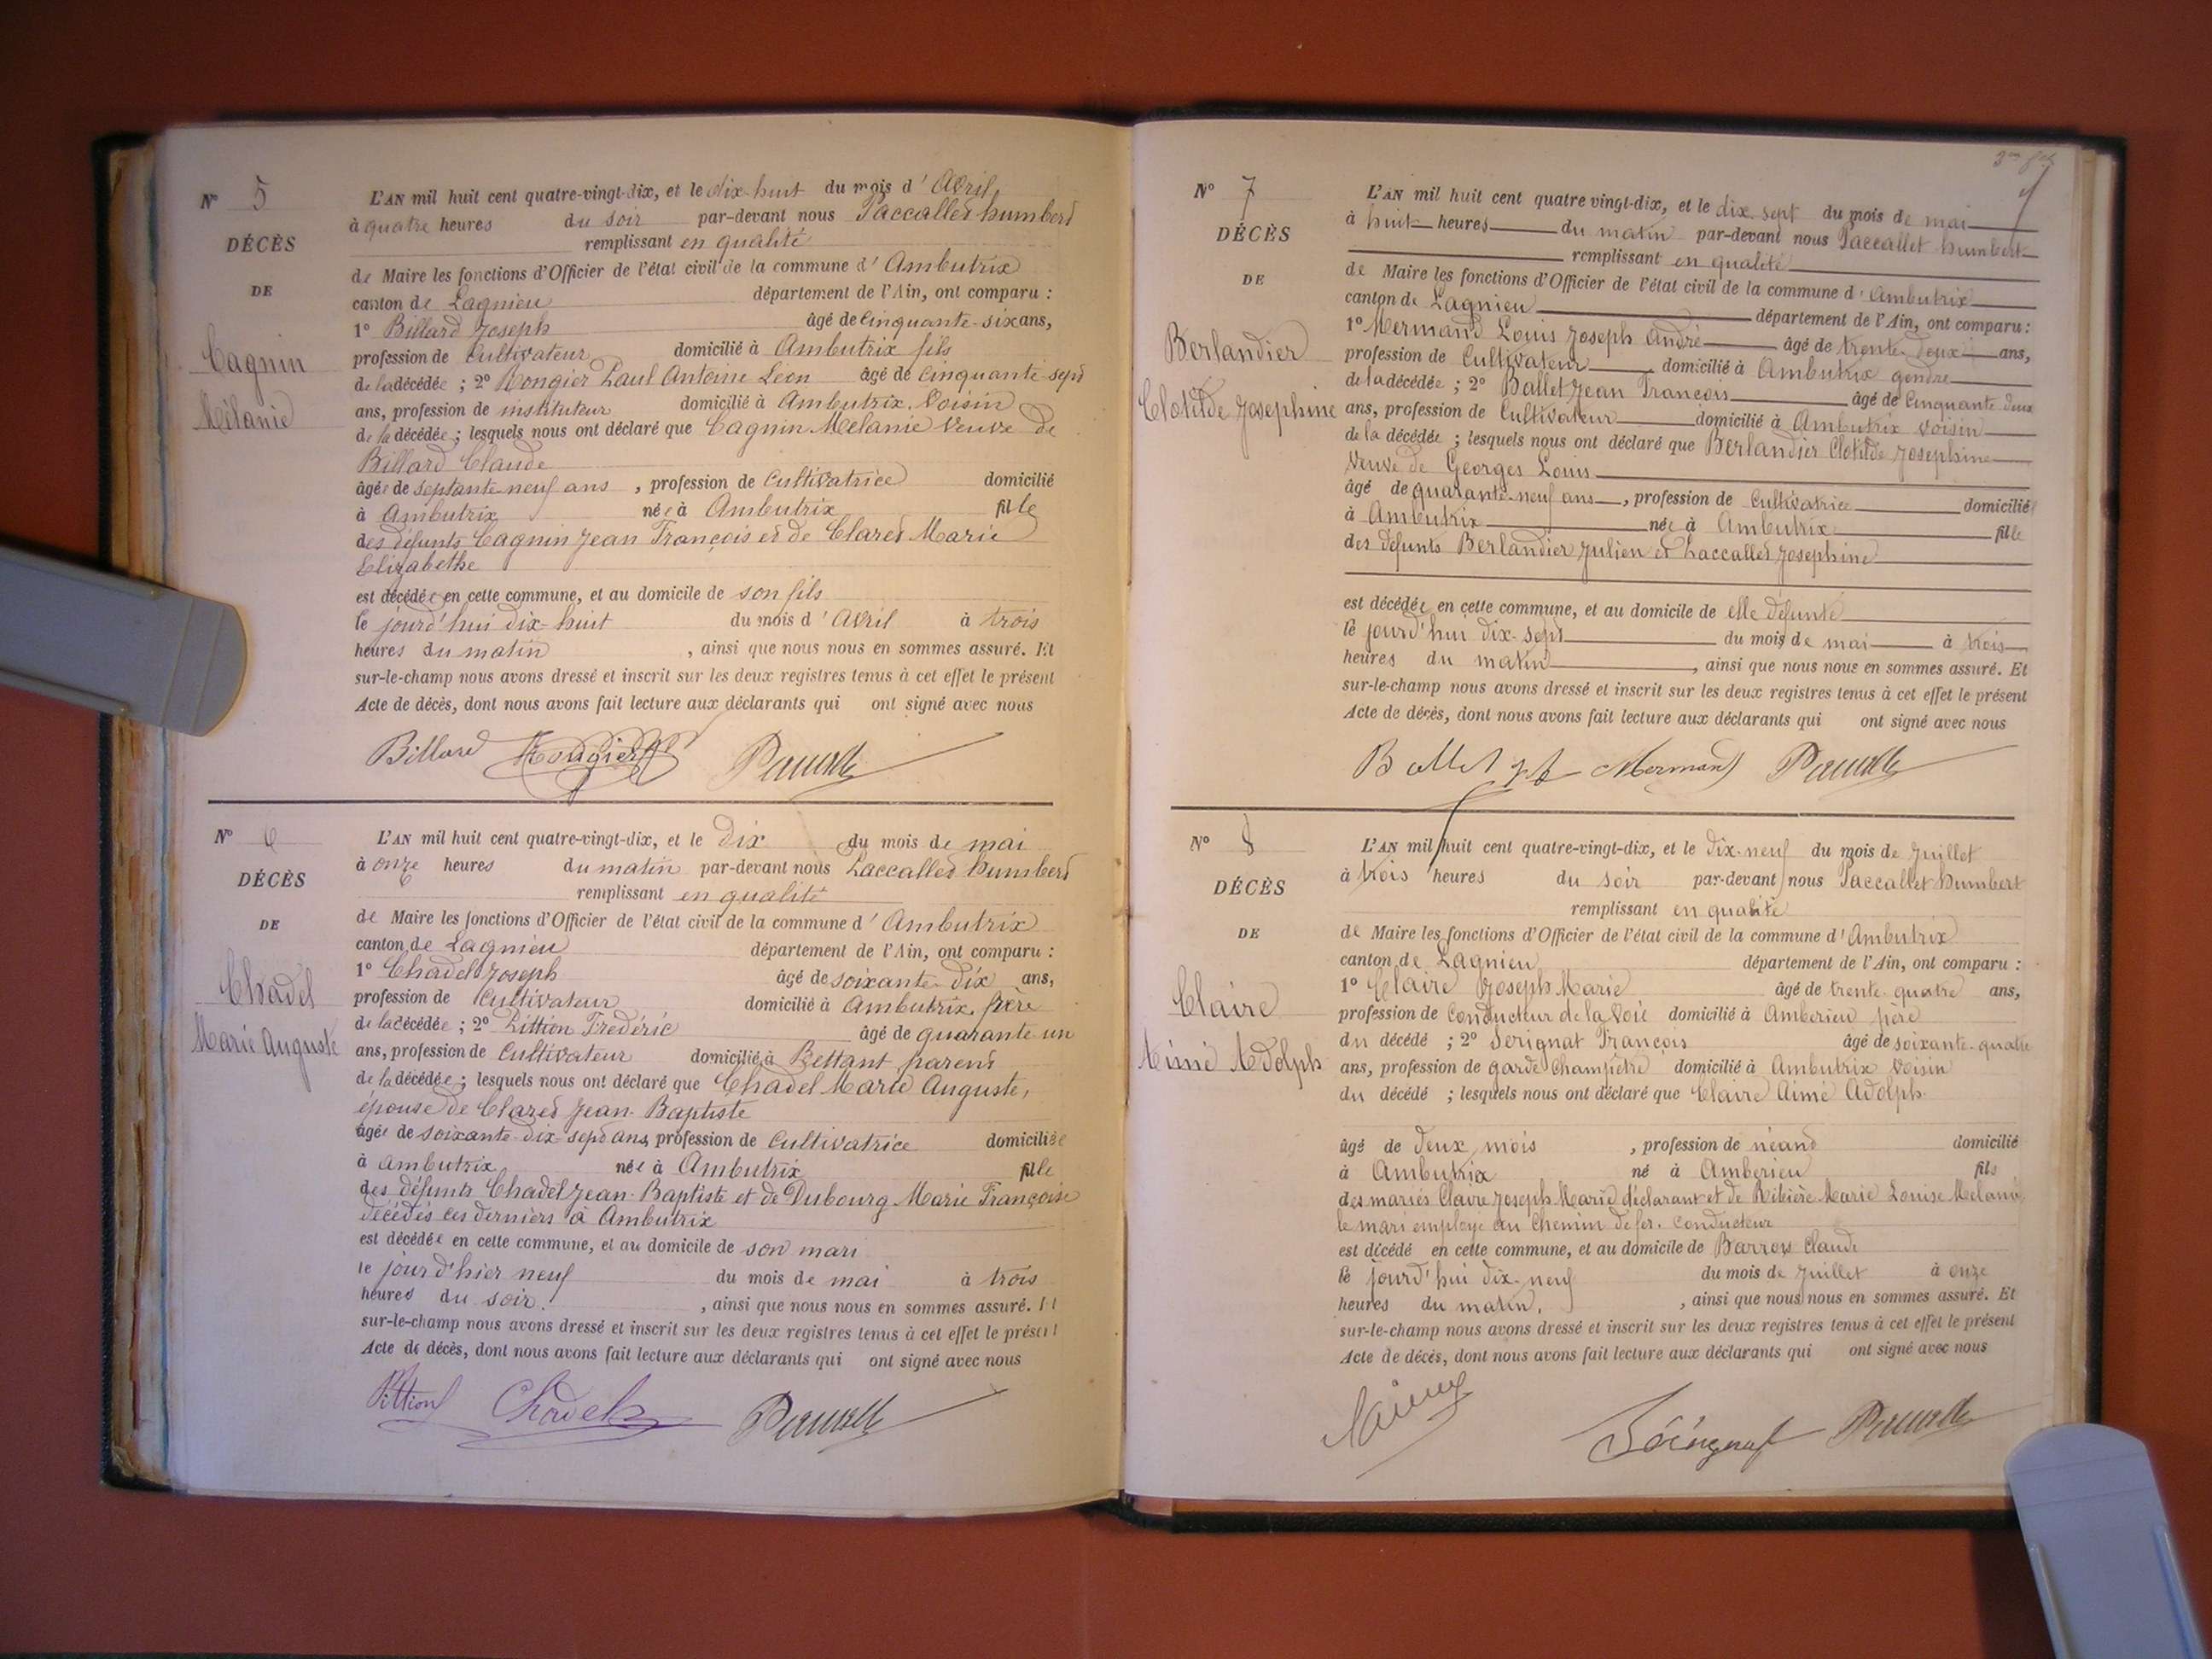 N° 5
DÉCÈS
DE
Cagnin
Mélanie
L'AN mil huit cent quatre-vingt-dix, et le dix-huit du mois d'Avril,
à quatre heures du soir par-devant nous Paccallet humbert
remplissant en qualité
de Maire les fonctions d'Officier de l'état civil de la commune d'Ambutrix
canton de Lagnieu département de l'Ain, ont comparu :
1° Billard Joseph âgé de Cinquante-six ans,
profession de Cultivateur domicilié à Ambutrix fils
de la décédée ; 2° Rougier Paul Antoine Leon âgé de cinquante-sept
ans, profession de instituteur domicilié à Ambutrix. Voisin
de la décédée ; lesquels nous ont déclaré que Cagnin Mélanie Veuve de
Billard Claude
âgée de septante-neuf ans, profession de Cultivatrice domicilié
à Ambutrix née à Ambutrix fille
des défunts Cagnin Jean François et de Claret Marie
Elizabethe
est décédée en cette commune, et au domicile de son fils
le jourd'hui dix-huit du mois d'Avril à trois
heures du matin, ainsi que nous nous en sommes assuré. Et
sur-le-champ nous avons dressé et inscrit sur les deux registres tenus à cet effet le présent
Acte de décès, dont nous avons fait lecture aux déclarants qui ont signé avec nous
Billard Rougier
N° 6
DÉCÈS
DE
Chadel
Marie Auguste
L'AN mil huit cent quatre-vingt-dix, et le Dix du mois de mai
à onze heures du matin par-devant nous Paccallet humbert
remplissant en qualité
de Maire les fonctions d'Officier de l'état civil de la commune d'Ambutrix
canton de Lagnieu département de l'Ain, ont comparu :
1° Chadel Joseph âgé de soixante-dix ans,
profession de Cultivateur domicilié à Ambutrix, frère
de la décédée ; 2° Pittion Frédéric âgé de quarante un
ans, profession de Cultivateur domicilié à Bettant parent
de la décédée ; lesquels nous ont déclaré que Chadel Marie Auguste,
épouse de Claret Jean-Baptiste
âgée de soixante-dix-sept ans, profession de Cultivatrice domiciliée
à ambutrix née à Ambutrix fille
des défunts Chadel Jean-Baptiste et de Dubourg Marie Françoise
décédés ces derniers à Ambutrix
est décédée en cette commune, et au domicile de son mari
le jourd'hier neuf du mois de mai à trois
heures du soir, ainsi que nous nous en sommes assuré. Et
sur-le-champ nous avons dressé et inscrit sur les deux registres tenus à cet effet le présent
Acte de décès, dont nous avons fait lecture aux déclarants qui ont signé avec nous
Pittion Chadel
N° 7
DÉCÈS
DE
Berlandier
Clotilde Josephine
L'AN mil huit cent quatre vingt-dix, et le dix-sept du mois de mai
à huit heures du matin par-devant nous Paccallet humbert
remplissant en qualité
de Maire les fonctions d'Officier de l'état civil de la commune d'Ambutrix
canton de Lagnieu département de l'Ain, ont comparu :
1° Mermand Louis Joseph André âgé de trente-deux ans,
profession de Cultivateur domicilié à Ambutrix gendre
de la décédée ; 2° Ballet Jean François âgé de Cinquante-deux
ans, profession de Cultivateur domicilié à Ambutrix voisin
de la décédée ; lesquels nous ont déclaré que Berlandier Clotilde Josephine
Veuve de Georges Louis
âgé de quarante-neuf ans, profession de Cultivatrice domicilié
à Ambutrix née à Ambutrix fille
des défunts Berlandier Julien et Paccallet Josephine
est décédée en cette commune, et au domicile de elle défunte
le jourd'hui dix-sept du mois de mai à trois
heures du matin, ainsi que nous nous en sommes assuré. Et
sur-le-champ nous avons dressé et inscrit sur les deux registres tenus à cet effet le présent
Acte de décès, dont nous avons fait lecture aux déclarants qui ont signé avec nous
Ballet Mermand
N° 8
DÉCÈS
DE
Claire
Aimé Adolph
L'AN mil huit cent quatre-vingt-dix, et le dix-neuf du mois de Juillet
à trois heures du soir par-devant nous Paccallet humbert
remplissant en qualité
de Maire les fonctions d'Officier de l'état civil de la commune d'Ambutrix
canton de Lagnieu département de l'Ain, ont comparu :
1° Claire Joseph Marie âgé de trente-quatre ans,
profession de Conducteur de la Voie domicilié à Amberieu père
du décédé ; 2° Serignat François âgé de soixante-quatre
ans, profession de garde Champêtre domicilié à Ambutrix Voisin
du décédé ; lesquels nous ont déclaré que Claire Aimé Adolph
âgé de deux mois, profession de néant domicilié
à Ambutrix né à Amberieu fils
des mariés Claire Joseph Marie déclarant et de Ribière Marie Louise Melanie
le mari employé au Chemin de fer. Conducteur
est décédé en cette commune, et au domicile de Barron Claude
le jourd'hui dix-neuf du mois de Juillet à onze
heures du matin, ainsi que nous nous en sommes assuré. Et
sur-le-champ nous avons dressé et inscrit sur les deux registres tenus à cet effet le présent
Acte de décès, dont nous avons fait lecture aux déclarants qui ont signé avec nous